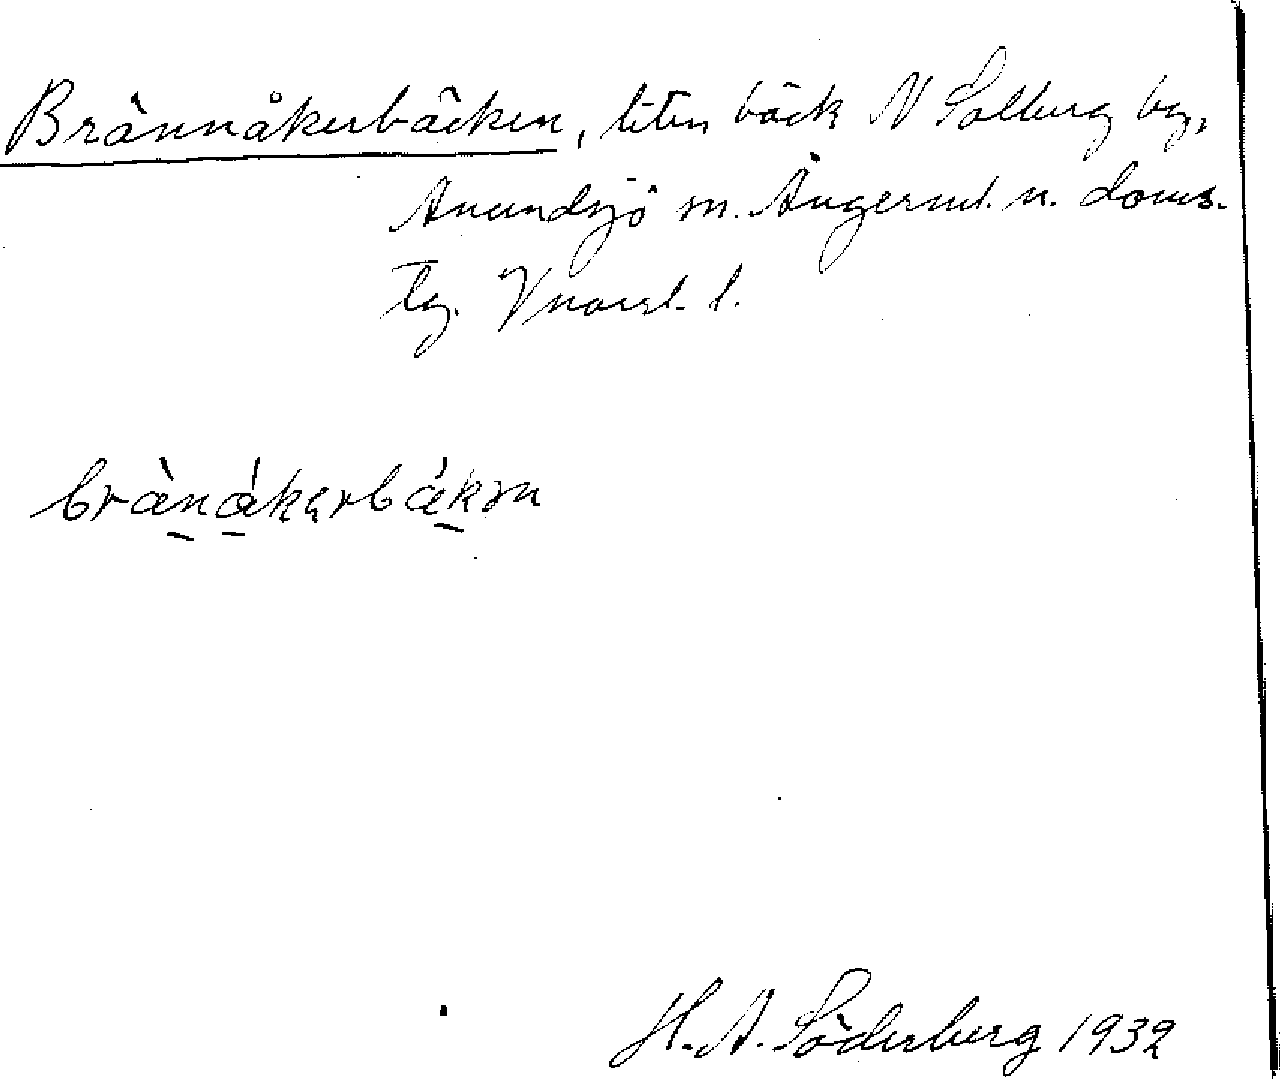 Brännåkerbäcken, liten bäck N Solberg by,
Anundsjö sn. Ångerml. n. doms.
tg. Vnorrl. l.
brànákərbákən
H. A. Söderberg 1932